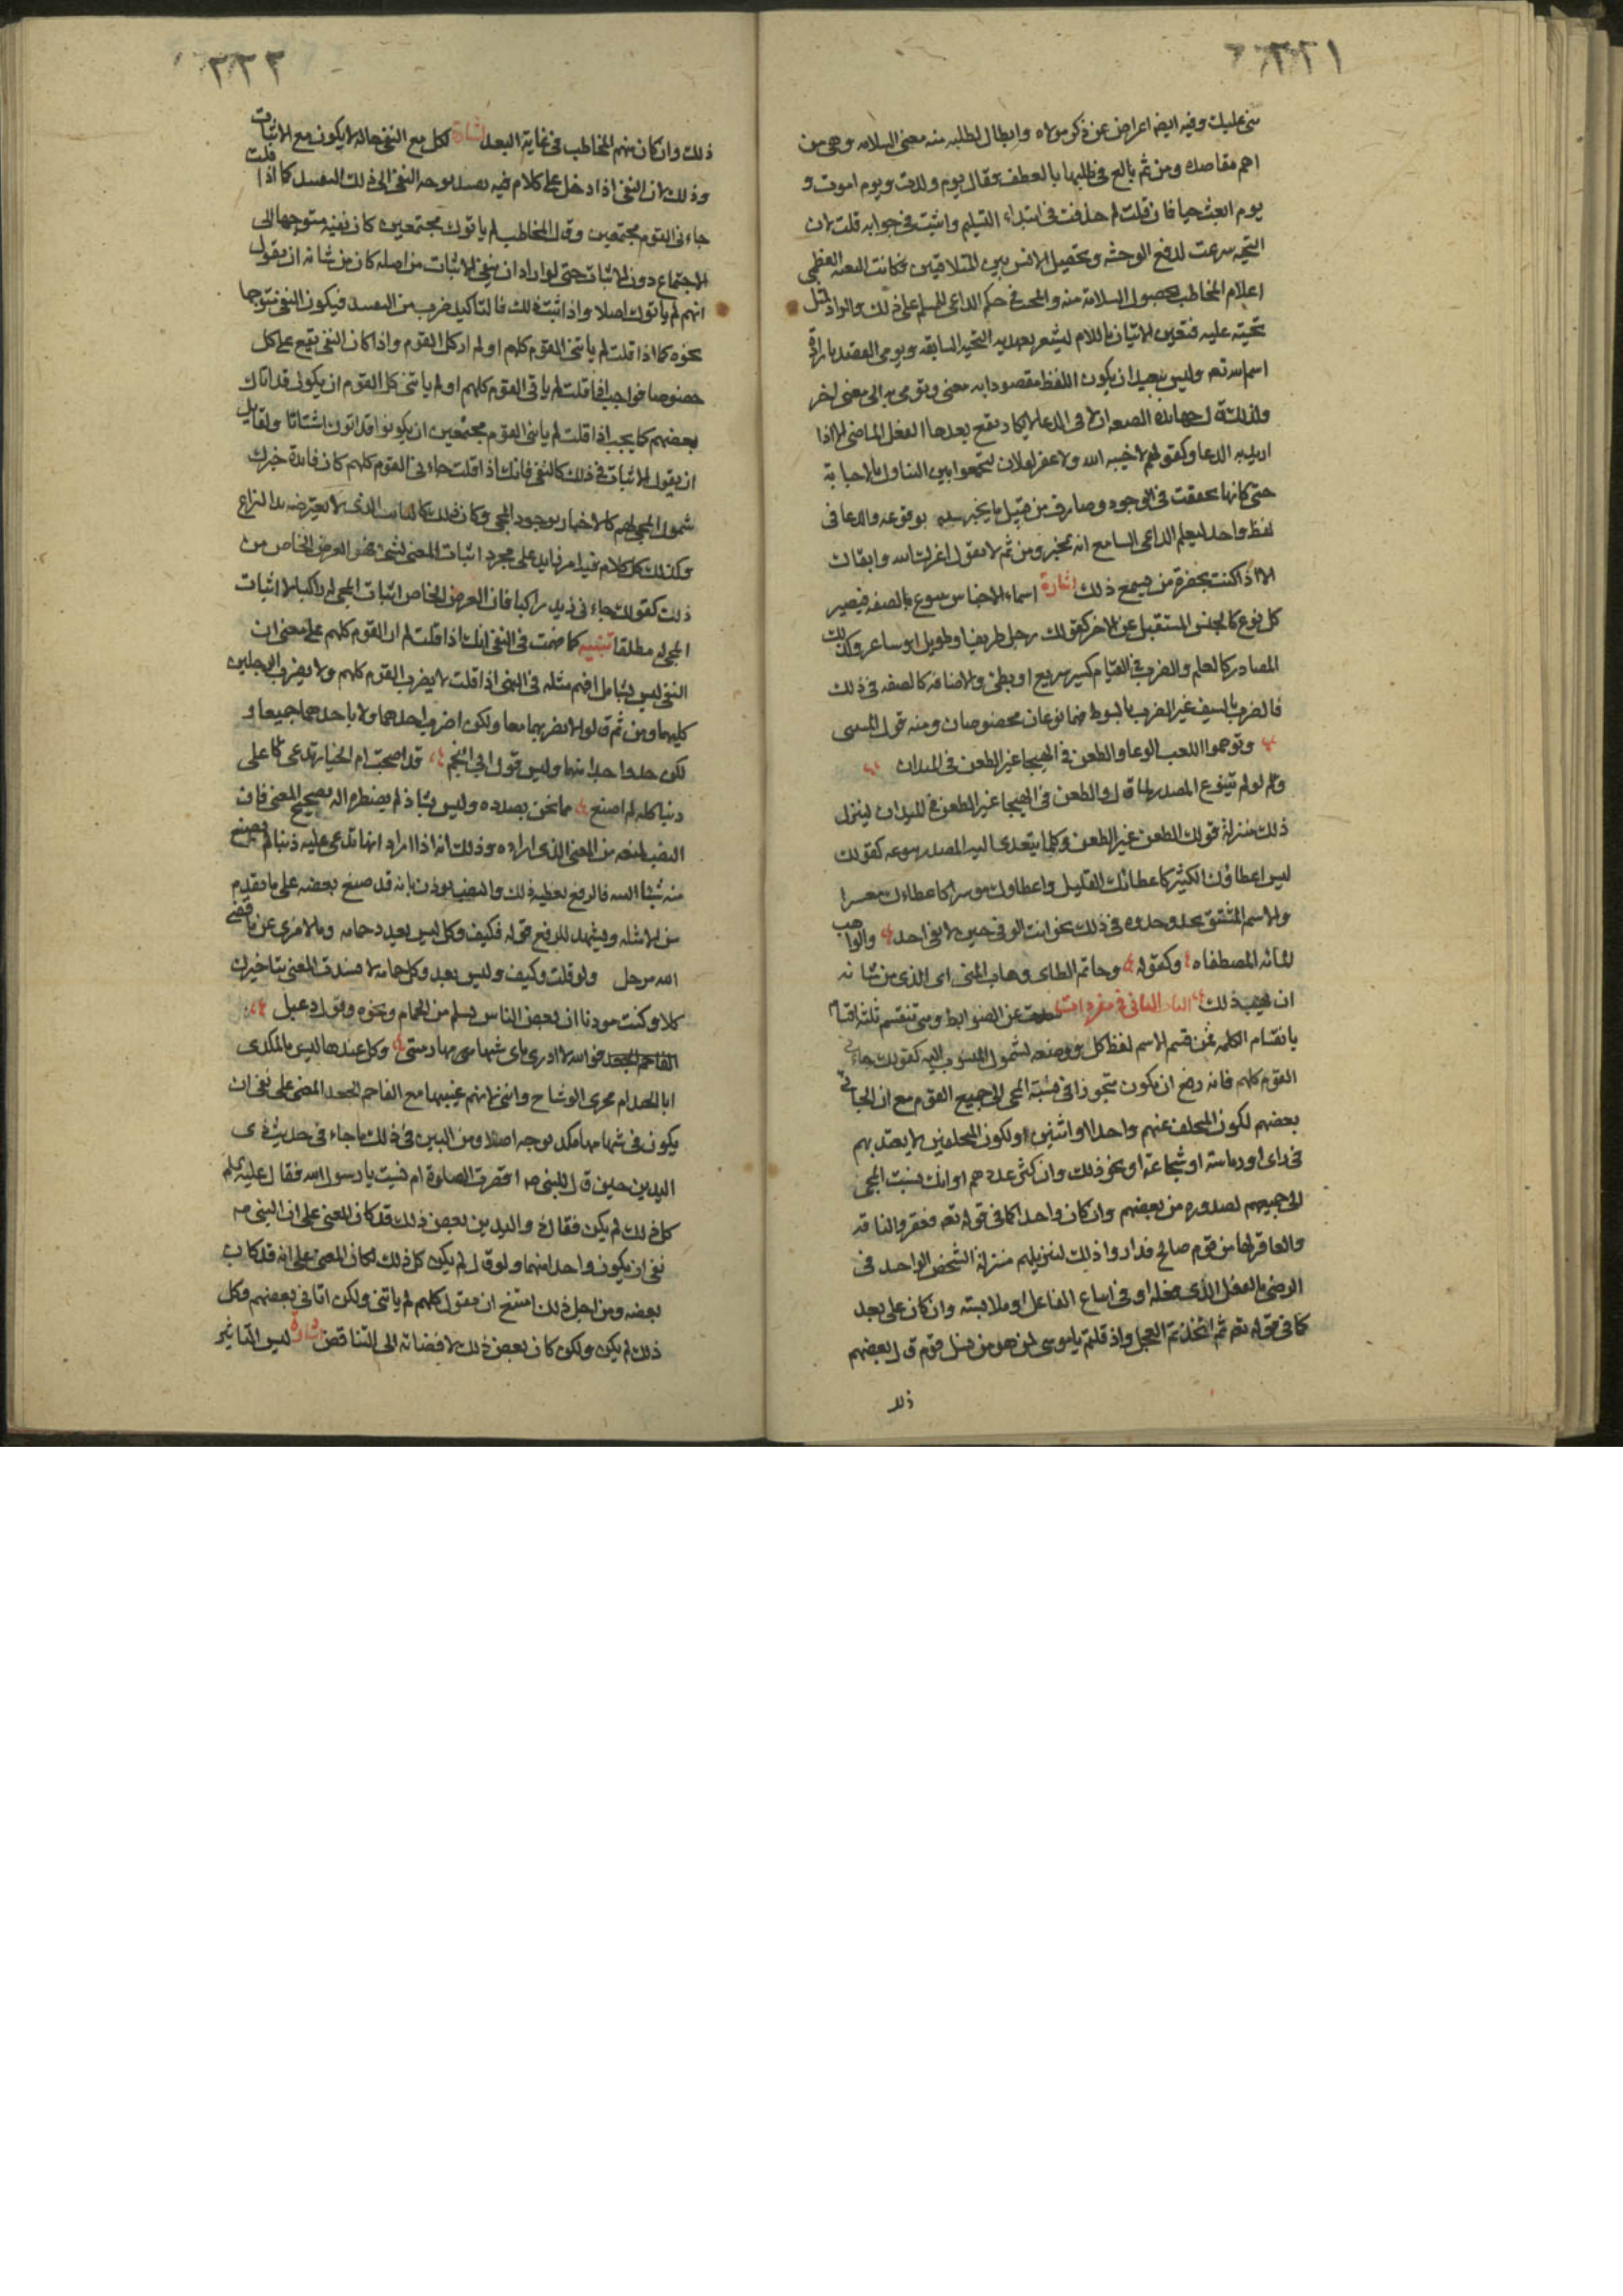 ٢٢١
عليك وفيه ايضا اعراض عن ذكر مولاه وابطال لطلبه منه معنى السلامه وهى من
اهم مقاصدك ومن ثم بالغ فى طلبها بالعطف فقال يوم ولدت ويوم اموت و
يوم ابعث حيا فان قلت لم حذفت فى ابتداء التسليم واثبت فى جوابه قلت لان
التحيه شرعت لدفع الوحشه وتحصيل الانس بين المتلاقيين فكانت العظمى
اعلام المخاطب بحصول السلامة منه والمجد فى حكم الداعى المسلم على ذلك
تحيته عليه فتعين الاتيان باللام ليشعر بعهديه التحيه السابقه ويومى
اسم الله تعه وليس ببعيد ان يكون اللفظ مقصودا به معنى ويومى به الى معنى اخر
ولذلك فى الدعا لا يكاد يقع بعدها الفعل الماضى الا اذا
اريد به الدعا وكقولهم لا خيبه الله ولا
حتى كانها تحققت فى الوجود وصارت من قبيل ما يخبر بوقوعه والدعا فى
لفظ واحد ليعلم الداعى السامع انه مخبر ومن ثم لا نقول اعزك الله وابقاك
الا اذا كنت بحضرة من يسمع ذلك اشارة اسماء الاجناس بالصفه فيصير
كل نوع كالجنس المستقبل عن الاخر كقولك رجل ظريف او طويل او ساعر وكذلك
المصادر كالعلم والضرب فى القيام كسير سريع او بطئ والاضافه كالصفه فى ذلك
فالضرب بالسيف غير الضرب بالسوط ضما نوعان مخصوصان ومنه قول المتنبى
وتوهموا اللعب الوغا والطعن فى الهيجا غير الطعن فى الميدان
ولم لو لم يتنوع المصدر لما قال والطعن فى الهيجا غير الطعن فى الميدان لينزل
ذلك منزلة قولك الطعن غير الطعن وكلما يتعدى اليه المصدر كقولك
ليس اعطاؤك الكثير كاعطائك القليل واعطاوك موسرا كاعطاءك معسرا
والاسم المشتق يحذو حذوه فى ذلك نحو انت الوفى حين لا يفى احد والواهب
المائه المصطفاه وكقوله وحاتم الطاى وهاب المئى اى الذى من شانه
ان يهب ذلك الباب الثانى فى مفردات عن الضوابط وهى تنقسم ثلثة اقسام
بانقسام الكلمه فمن قسم الاسم لفظ كل ووضعه لشمول المنسوب اليه كقولك جاءنى
القوم كلهم فانه رفع ان يكون تجوزا فى نسبة المجى الى جميع القوم مع ان الجائى
بعضهم لكون المخلف عنهم واحدا او اثنين او لكون المخلفين لا يعتد بهم
فى راى او رياسته او شجاعته او نحو ذلك وان كثر عددهم او انك نسبت المجى
الى جميعهم لصدوره من بعضهم وان كان واحدا كما فى قوله تعه فعقروا الناقه
والعاقر لها من قوم صالح قدار واذلك لتنزيلهم منزلة الشخص الواحد فى
الرضى بالفعل الذى فعله او فى اتباع الفاعل او ملابسته وان كان على بعد
كما فى قوله تعه ثم اتخذتم العجل واذ قلتم يا موسى لن هو من قبل قوم قال بعضهم
ذلك
٢٢٢
ذلك وان كان منهم المخاطب فى غاية البعد اشارة لكل مع النفى حاله لا يكون مع الاثبات
وذلك ان النفى اذا دخل على كلام فيه تقييد توجه النفى الى ذلك التقييد كما اذا قلت
جاءنى القوم مجتمعين وقال المخاطب لم ياتوك مجتمعين كان نفيه متوجها الى
الاجتماع دون الاثبات حتى لو اراد ان ينفى الاثبات من اصله كان من شانه ان يقول
انهم لم ياتوك اصلا واذا اثبت ذلك فالتاكيد ضرب من التقييد فيكون النفى متوجها
نحوه كما اذا قلت لم ياتنى القوم كلهم او لم ار كل القوم واذا كان النفى يقع على كل
خصوصا فواجب اذا قلت لم ياتى القوم كلهم او لم ياتنى كل القوم ان يكون قد اتاك
بعضهم كما يجب اذا قلت لم ياتنى القوم مجتمعين ان يكونوا قد اتوك اشتاتا ولقايل
ان يقول الاثبات فى ذلك كالنفى فانك اذا قلت جاءنى القوم كلهم كان فائدة خبرك
شمول المجى لهم كالاخبار بوجود المجى وكان ذلك الذى لا يعترضه النزاع
وكذلك كل كلام فيه امر زايد على مجرد اثبات المعنى لشئ فهو الغرض الخاص من
ذلك كقولك جاءنى زيد راكبا فان الغرض الخاص اثبات المجى له راكبا لا اثبات
المجى له مطلقا تنبيه كما ضمت فى النفى انك اذا قلت لم ار القوم كلهم على معنى ان
النفى ليس بشامل افهم مثله فى النهى اذا قلت لا يضرب القوم كلهم ولا يضرب الرجلين
كليهما ومن ثم قالوا لا تضربهما معا ولكن اضرب احدهما ولا ياخذهما جميعا و
لكن خذ واحدا منهما وليس قول ابى النجم قد اصبحت ام الخيار تدعى على
ذنبا كله لم اصنع مما نحن بصدده وليس بشاذ لم يضطره اليه تصحيح المعنى فان
النصب لمنعه من المعنى الذى اراده وذلك انه اذا اراد انها تدعى عليه ذنبا لم يصنع
منه شيئا البته فالرفع يعطيه ذلك والنصب يوذن بانه قد صنع بعضه على ما تقدم
من الامثله ويشهد للرفع قوله فكيف وكل ليس يعيد حمامه وما لامرى عن ما قضى
الله مرحل ولو قلت وكيف وليس يعد وكل حمامه لا فسدت المعنى بتاخيرك
كلا وكنت موذنا ان بعض الناس يسلم من الحمام ونحوه وقول دعبل
فوالله لا ادرى باى سهامى رمتنى وكل عندها ليس بالمكدى
ابا الجيد ام مجرى الوشاح واننى لا تهم عينيها مع الفاحم الجعد المضى على نفى ان
يكون فى سهامها مكد بوجه اصلا ومن البين فى ذلك ما جاء فى حديث ذى
اليدين حين قال للنبى ص اقصرت الصلوة ام نسيت يا رسول الله فقال عليه السلم
كل ذلك لم يكن فقال ذو اليدين بعض ذلك قد كان المعنى على ان النبى ص
نفى ان يكون واحدا منهما ولو قال لم يكن كل ذلك لكان المعنى على انه قد كان
بعضه ومن اجل ذلك امتنع ان يقول كلهم لم ياتنى ولكن اتانى بعضهم وكل
ذلك لم يكن ولكن كان بعض ذلك لافضائه الى التناقض اشارة ليس التاثير